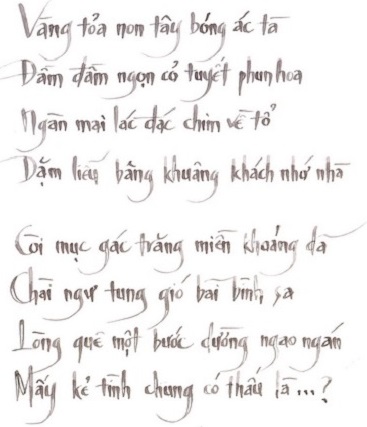 Vàng tỏa non tây bóng ác tà
Đầm đầm ngọn cỏ tuyết phun hoa
Ngàn mai lác đác chim về tổ
Dặm liễu bâng khuâng khách nhớ nhà
Còi mục gác trăng miền khoảng dã
Chài ngư tung gió bãi bình sa
Lòng quê một bước dường ngao ngán
Mấy kẻ tình chung có thấu là...?